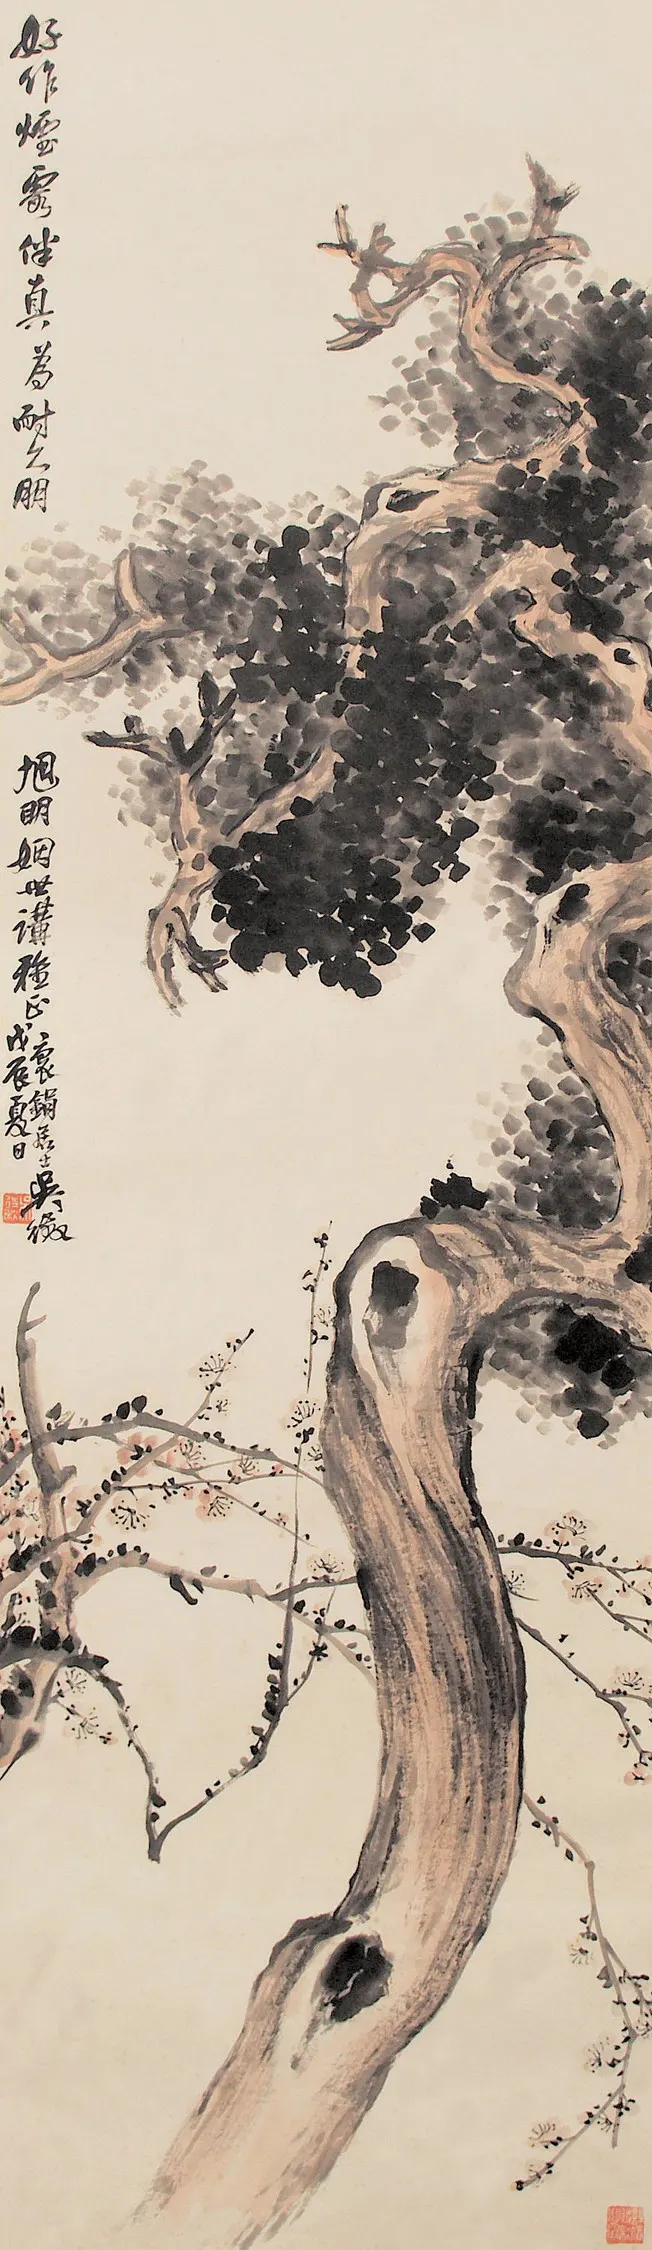 好作煙霞伴真為耐久朋
旭明姻世講雅正
戊辰夏日
褱鋗居士吳徵